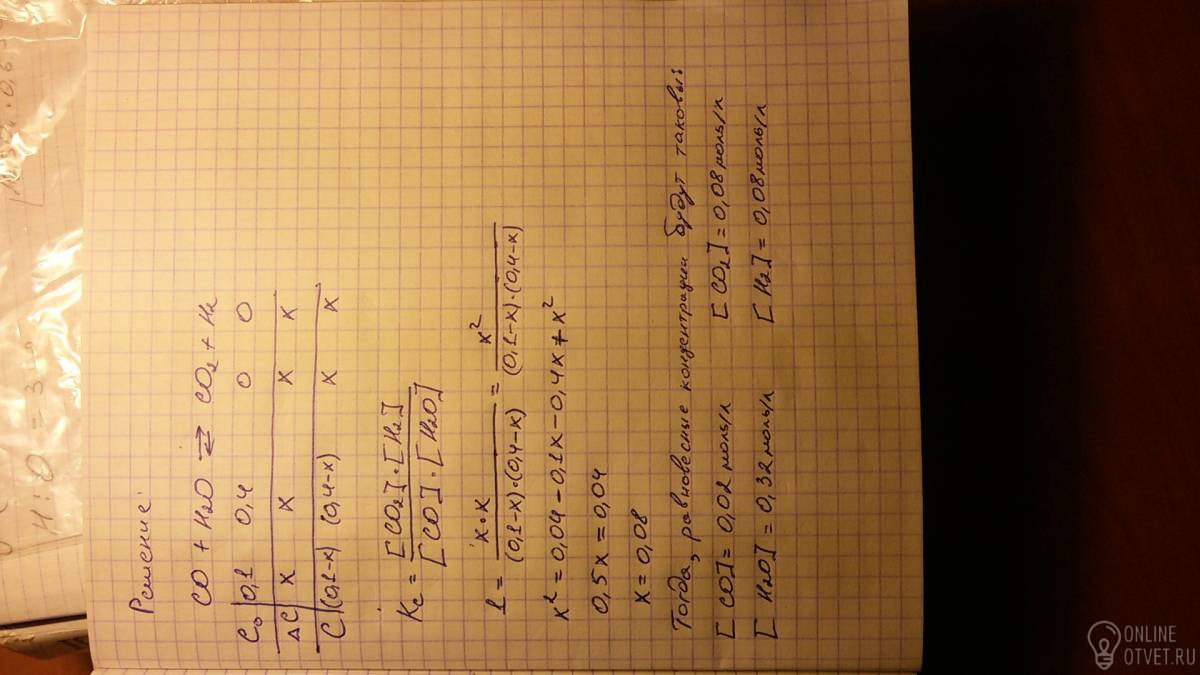 Решение:
CO + H2O ⇄ CO2 + H2
C0 | 0,1 0,4 0 0
ΔC | x x x x
C | (0,1-x) (0,4-x) x x
Kc = [CO2]·[H2] / [CO]·[H2O]
1 = x·x / (0,1-x)·(0,4-x) = x² / (0,1-x)·(0,4-x)
x² = 0,04 - 0,1x - 0,4x + x²
0,5x = 0,04
x = 0,08
Тогда, равновесные концентрации будут таковы:
[CO] = 0,02 моль/л [CO2] = 0,08 моль/л
[H2O] = 0,32 моль/л [H2] = 0,08 моль/л
ONLINE
OTVET.RU